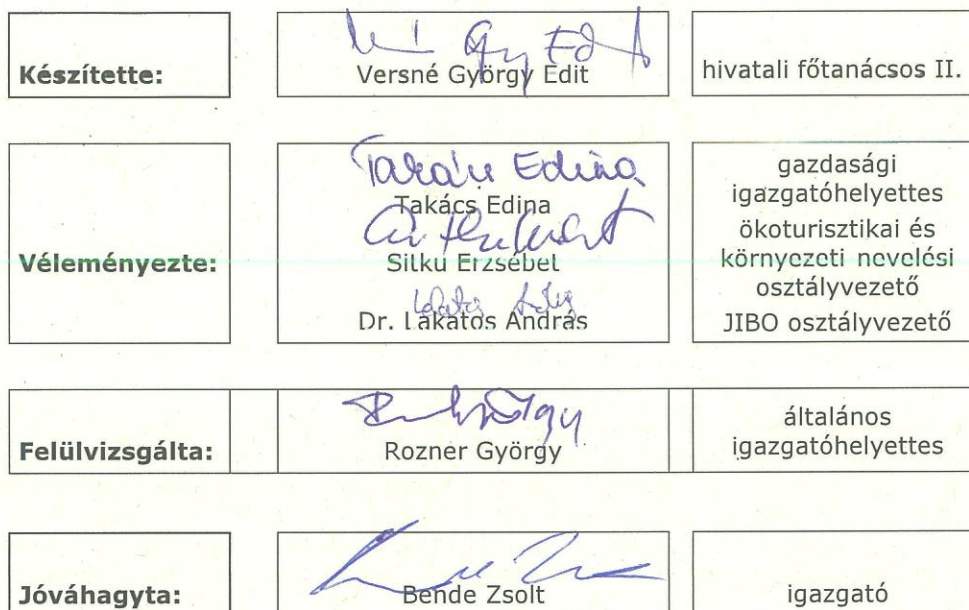 Készítette:
Versné György Edit
hivatali főtanácsos II.
Véleményezte:
Takács Edina
Takács Edina
Sitku Erzsébet
Dr. Lakatos András
gazdasági
igazgatóhelyettes
ökoturisztikai és
környezeti nevelési
osztályvezető
JIBO osztályvezető
Felülvizsgálta:
Rozner György
általános
igazgatóhelyettes
Jóváhagyta:
Bende Zsolt
igazgató